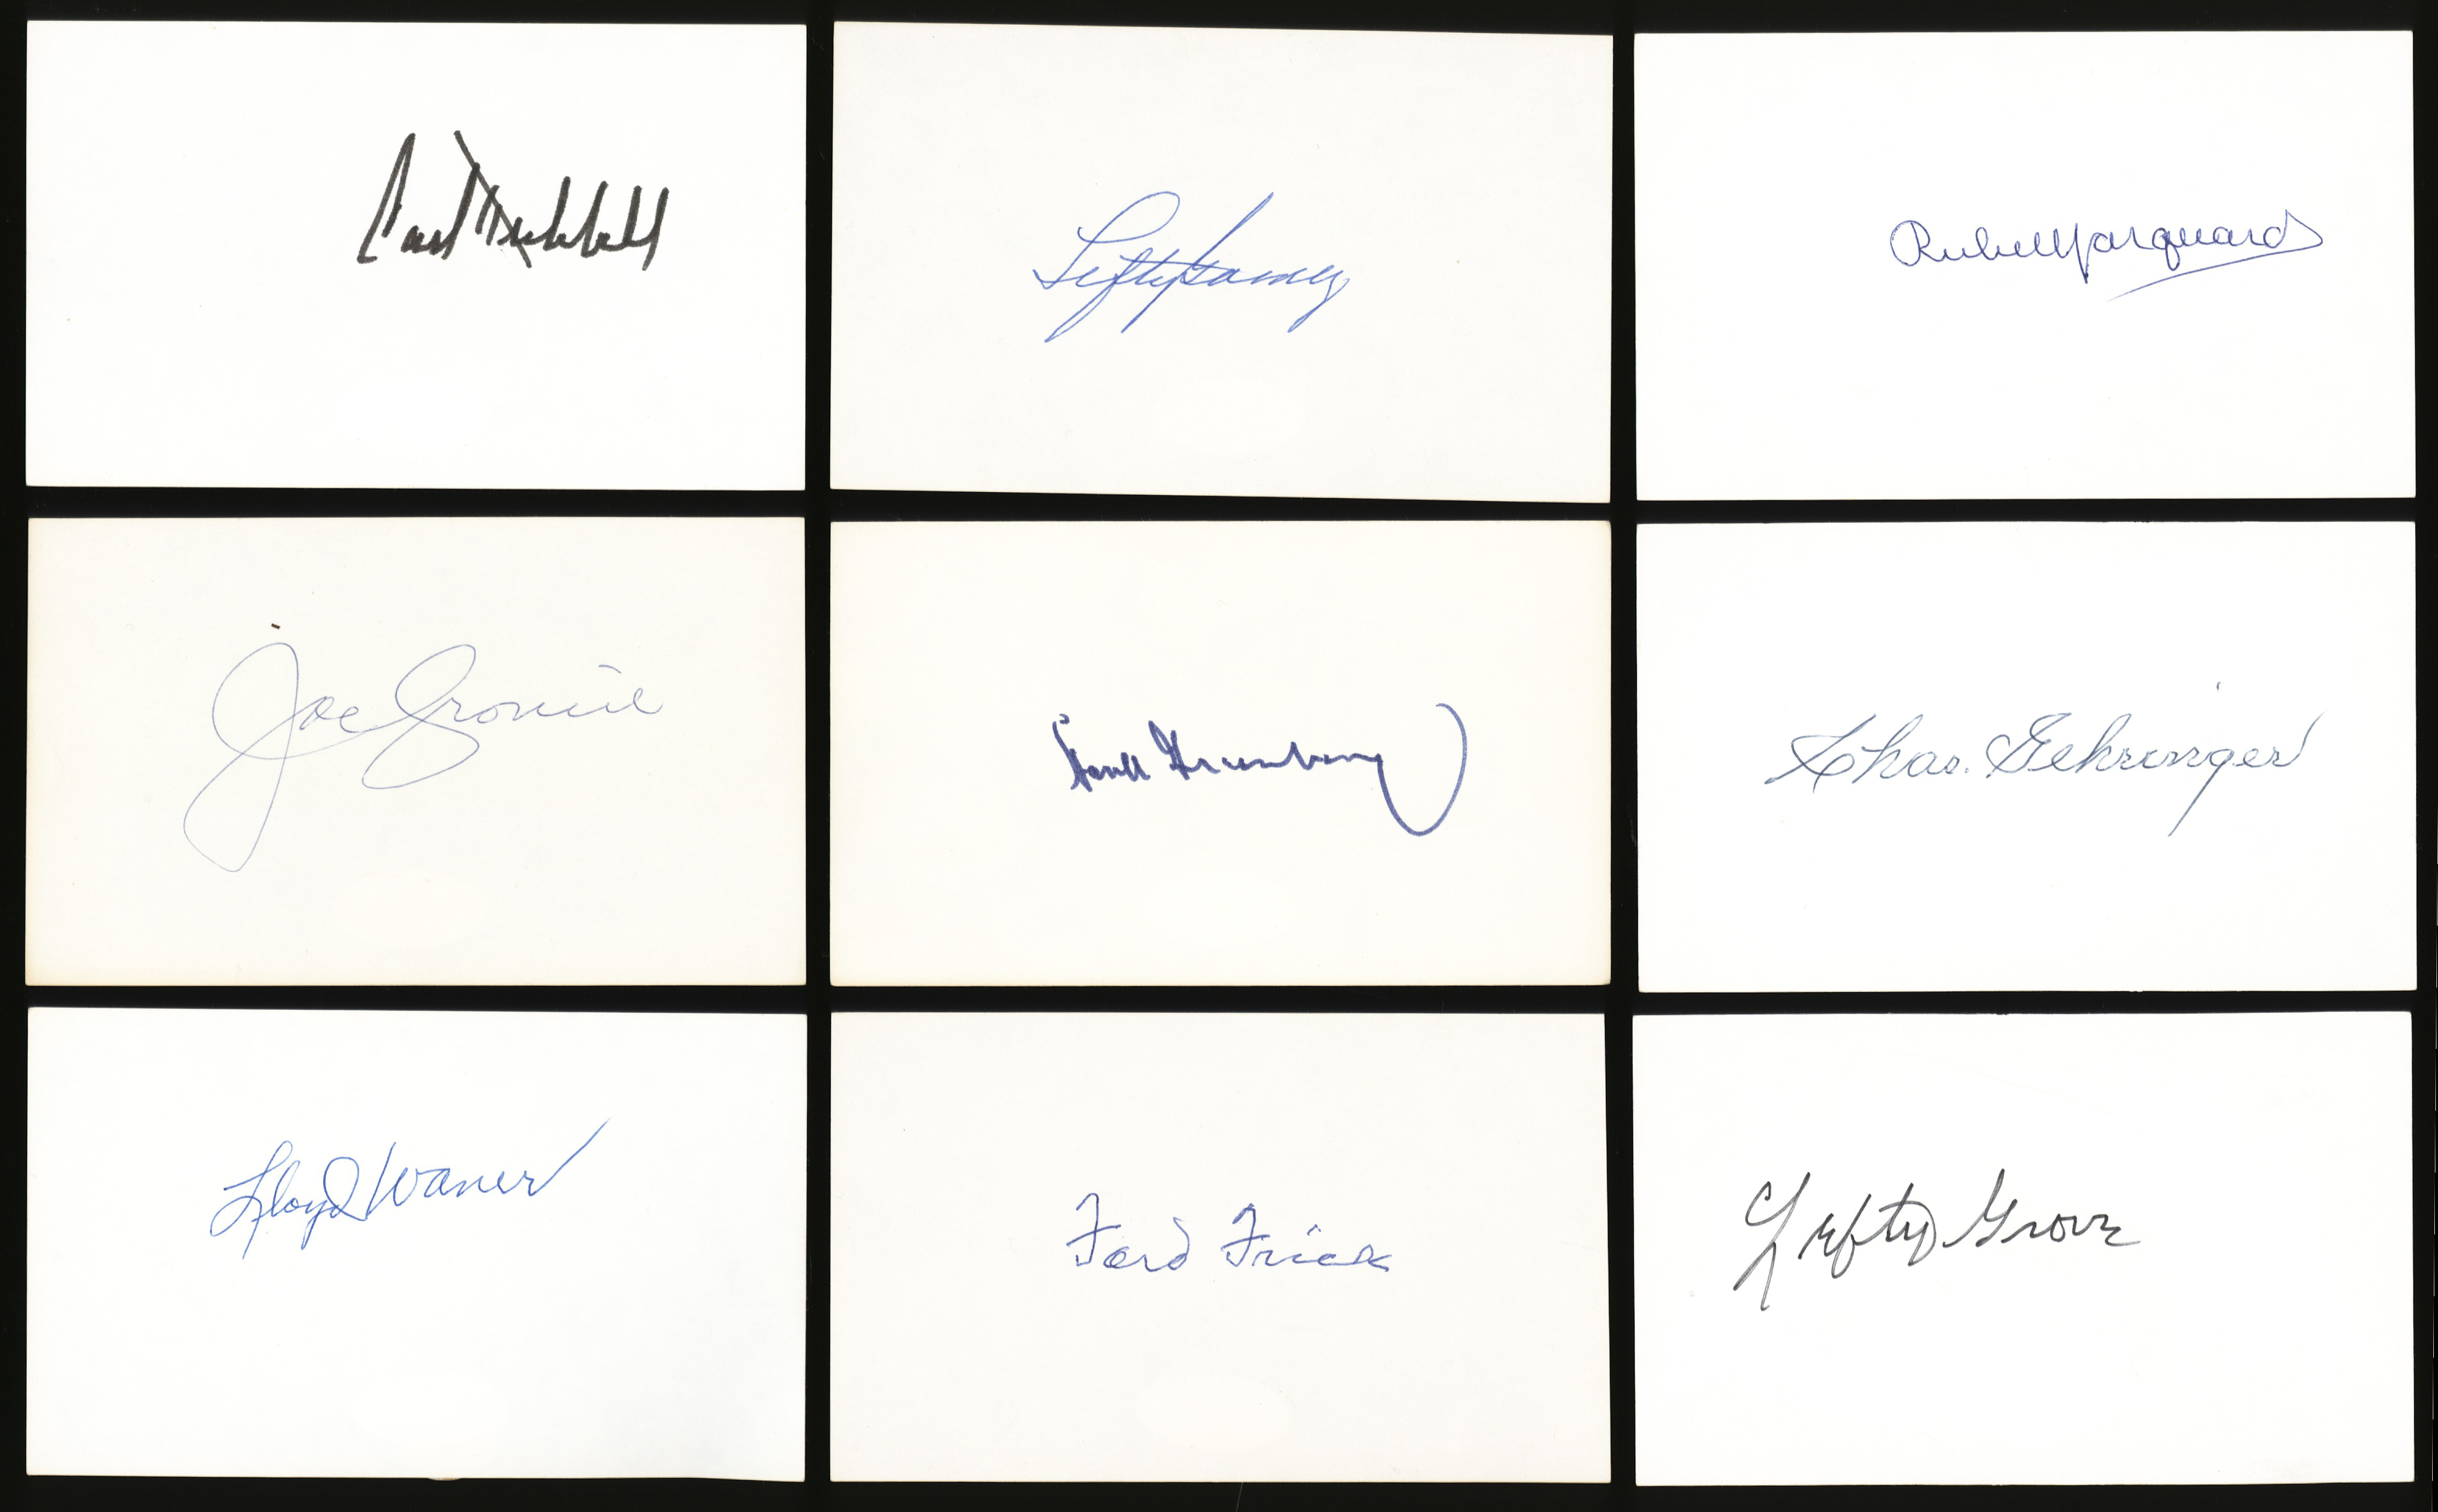 Carl Hubbell
Lefty Gomez
Rube Marquard
Joe Cronin
Hank Greenberg
Chas. Gehringer
Lloyd Waner
Ford Frick
Lefty Grove